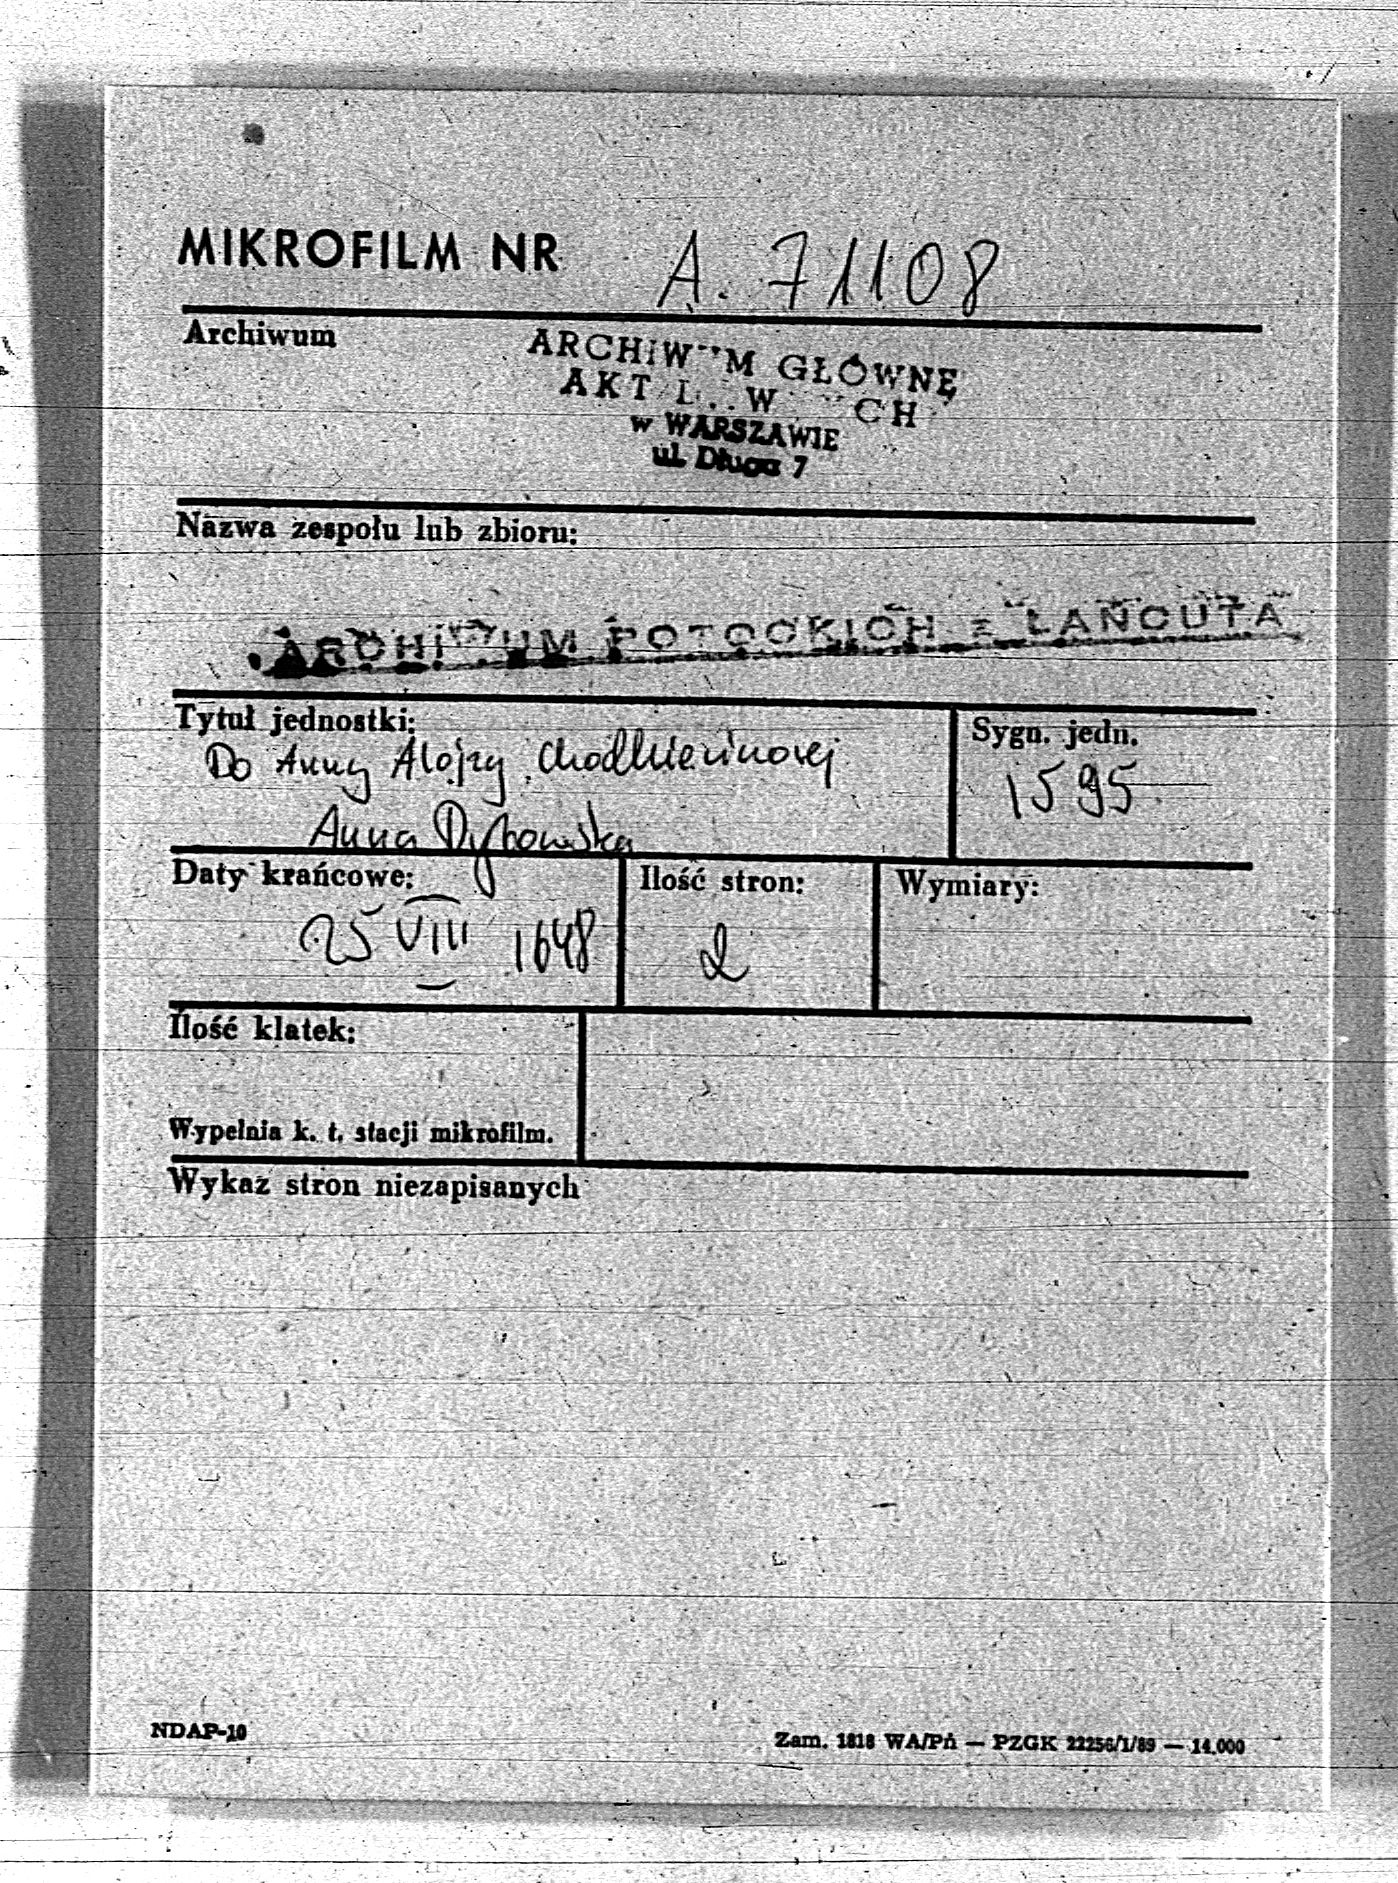 MIKROFILM NR A. 71108
Archiwum
ARCHIWUM GŁÓWNE
AKT DAWNYCH
w WARSZAWIE
ul. Długa 7
Nazwa zespołu lub zbioru:
ARCHIWUM POTOCKICH z ŁAŃCUTA
Tytuł jednostki:
Do Anny Alojzy Chodkiewiczowej
Anna Dybowska
Sygn. jedn.
1595
Daty krańcowe:
25 VIII 1648
Ilość stron:
2
Wymiary:
Ilość klatek:
Wypełnia k. t. stacji mikrofilm.
Wykaz stron niezapisanych
NDAP-10
Zam. 1818 WA/Pń — PZGK 22256/1/89 — 14.000